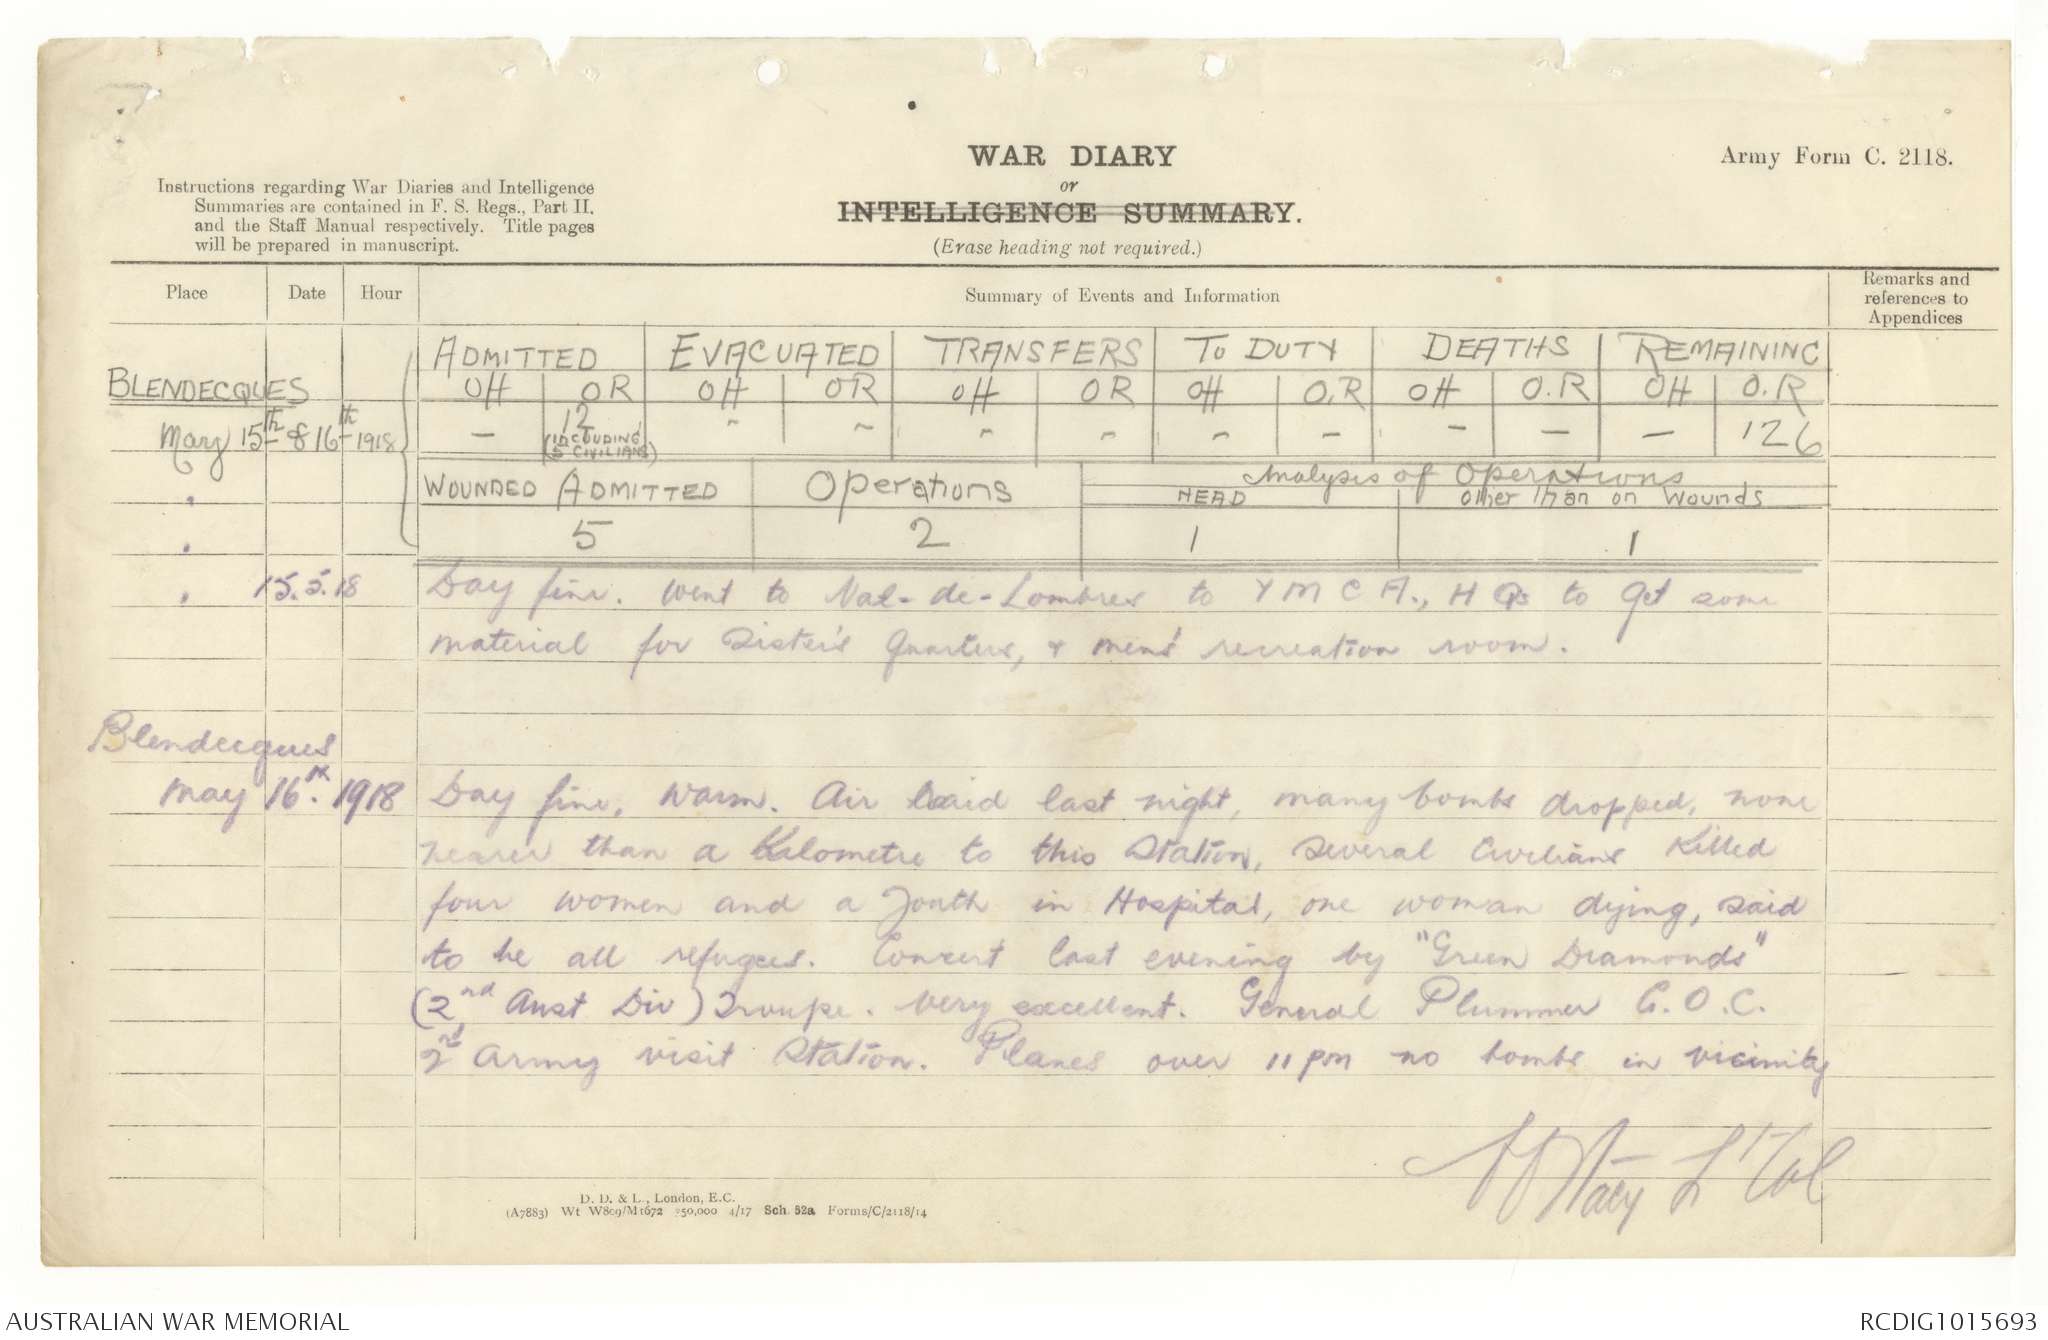 WAR DIARY
or
INTELLIGENCE SUMMARY.
(Erase heading not required.)
Army Form C. 2118.
Instructions regarding War Diaries and Intelligence
Summaries are contained in F. S. Regs., Part II,
and the Staff Manual respectively. Title pages
will be prepared in manuscript.
Place Date Hour Summary of Events and Information Remarks and references to Appendices
ADMITTED EVACUATED TRANSFERS TO DUTY DEATHS REMAINING
BLENDECQUES Off OR Off OR Off OR Off O.R Off O.R Off O.R
May 15th & 16th 1918 – 12 (INCLUDING 5 CIVILIANS) – – – – – – – – – 126
WOUNDED ADMITTED Operations Analysis of Operations
HEAD Other than on Wounds
5 2 1 1
" 15.5.18 Day fine. Went to Val-de-Lombres to YMCA., HQs to get some
material for Sister's Quarters, & mens' recreation room.
Blendecques
May 16th. 1918 Day fine, warm. Air Raid last night, many bombs dropped, none
nearer than a Kilometre to this Station, several Civilians Killed
four women and a Youth in Hospital, one woman dying, said
to be all refugees. Concert last evening by "Green Diamonds"
(2nd Aust Div) Troupe. Very excellent. General Plummer G.O.C.
2nd Army visit Station. Planes over 11 pm no bombs in vicinity
Stacy Lt Col
D. D. & L., London, E.C.
(A7883) Wt W809/M1672 350,000 4/17 Sch. 52a Forms/C/2118/14
AUSTRALIAN WAR MEMORIAL
RCDIG1015693